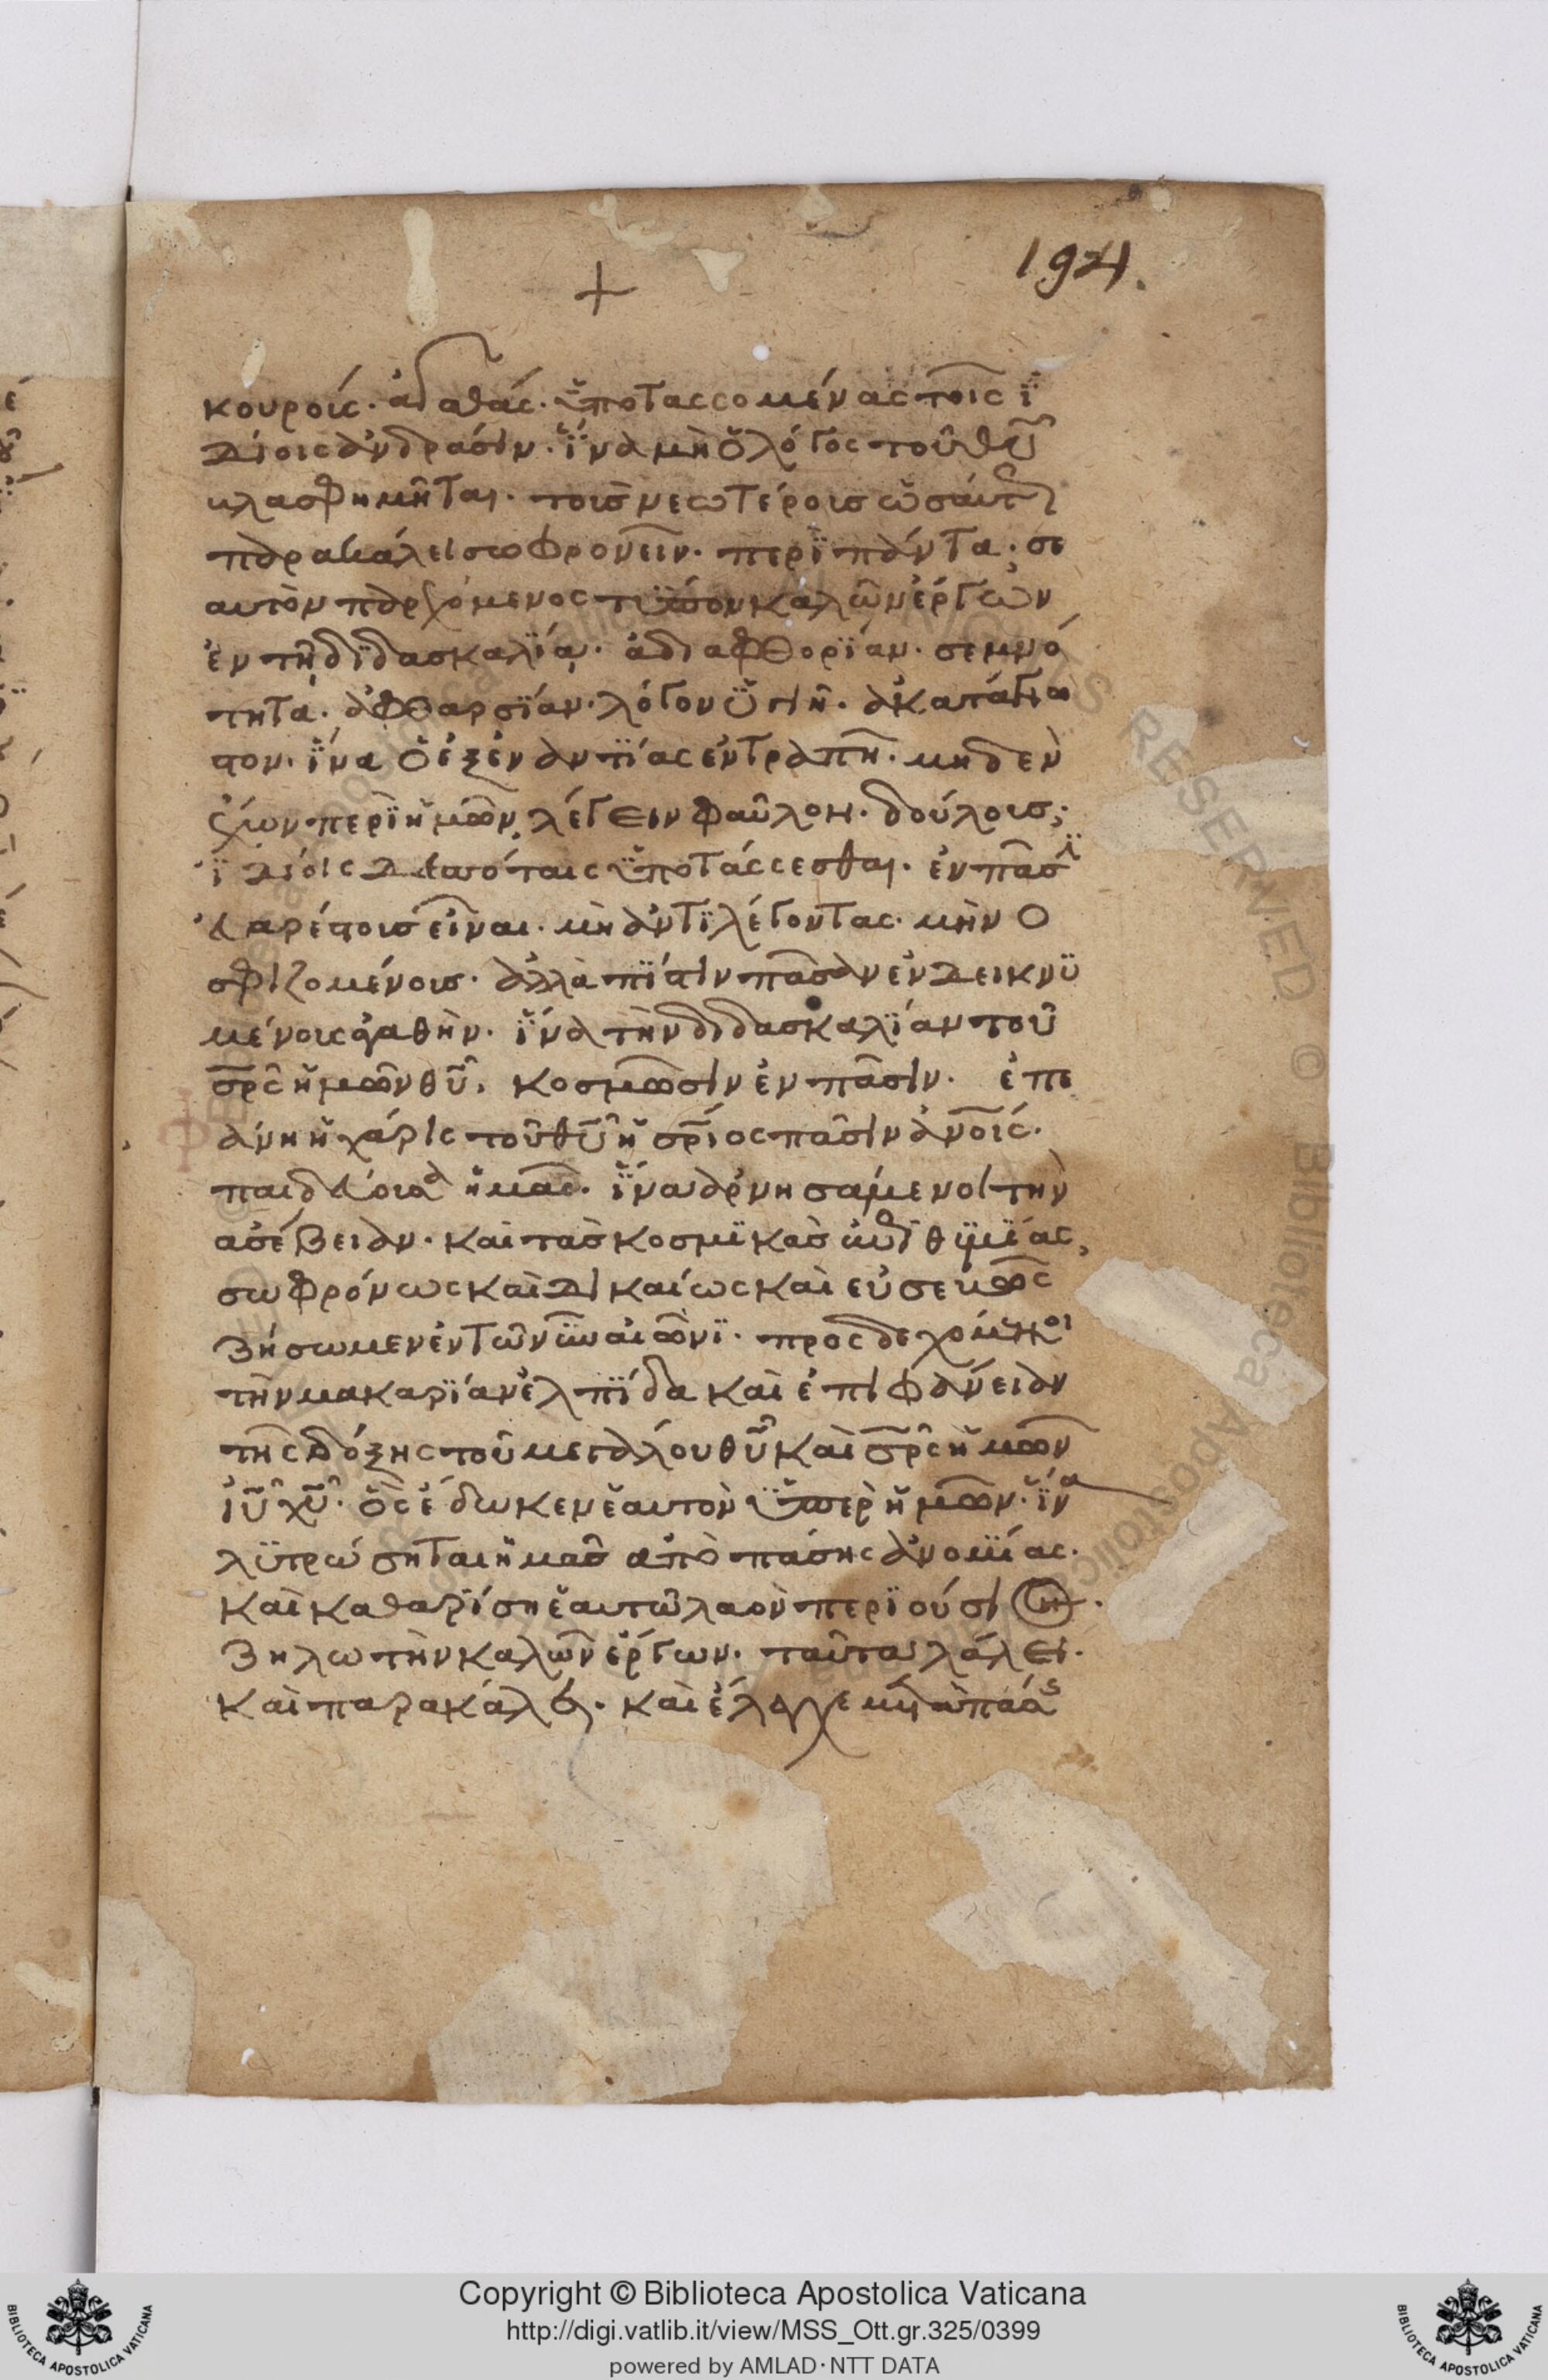 194.
+
κουροίς. ἀγαθάς. ὑποτασσομένας τοῖς ἰ
δίοις ἀνδράσιν. ἵνα μὴ ὁ λόγος τοῦ θῡ
βλασφημῆται. τοὺς νεωτέροις ὡσαύτως
παρακάλει σωφρονεῖν. περὶ πάντα. σε
αυτὸν παρεχόμενος τύπον καλῶν ἔργων
ἐν τῇ διδασκαλίᾳ. ἀδιαφθορίαν. σεμνό
τητα. ἀφθαρσίαν. λόγον ὑγιῆ. ἀκατάγνω
στον. ἵνα ὁ ἐξ ἐναντίας ἐντραπῆ. μηδὲν
ἔχων περὶ ἡμῶν λέγειν φαῦλον. δούλοις
ἰδίοις δεσπόταις ὑποτάσσεσθαι. ἐν πᾶσι
εὐαρέστοις εἶναι. μὴ ἀντιλέγοντας. μὴ νο
σφιζομένοις. ἀλλὰ πίστιν πᾶσαν ἐνδεικνυ
μένοις ἀγαθὴν. ἵνα τὴν διδασκαλίαν τοῦ
σρ̄ς ἡμῶν θῡ. κοσμῶσιν ἐν πᾶσιν. ἐπε
φάνη ἡ χάρις τοῦ θῡ ἡ σρ̄ιος πᾶσιν ἀνοῖς.
παιδεύουσα ἡμᾶς. ἵνα ἀρνησάμενοι τὴν
ασέβειαν. καὶ τὰς κοσμικὰς ἐπιθυμίας,
σωφρόνως καὶ δικαίως καὶ εὐσεβῶς
ζήσωμεν ἐν τῶ νῦν αἰῶνι. προσδεχόμενοι
τὴν μακαρίαν ἐλπίδα καὶ ἐπιφάνειαν
τῆς δόξης τοῦ μεγάλου θῡ καὶ σρ̄ς ἡμῶν
ἰῡ χῡ. ὃς ἔδωκεν ἑαυτὸν ὑπὲρ ἡμῶν. ἵνα
λυτρώσηται ἡμᾶς ἀπὸ πάσης ἀνομίας.
καὶ καθαρίση ἑαυτῶ λαὸν περιούσιον.
ζηλωτὴν καλῶν ἔργων. ταῦτα λάλει.
καὶ παρακάλει. καὶ ἔλεγχε μετὰ πάσης
Copyright © Biblioteca Apostolica Vaticana
http://digi.vatlib.it/view/MSS_Ott.gr.325/0399
powered by AMLAD·NTT DATA